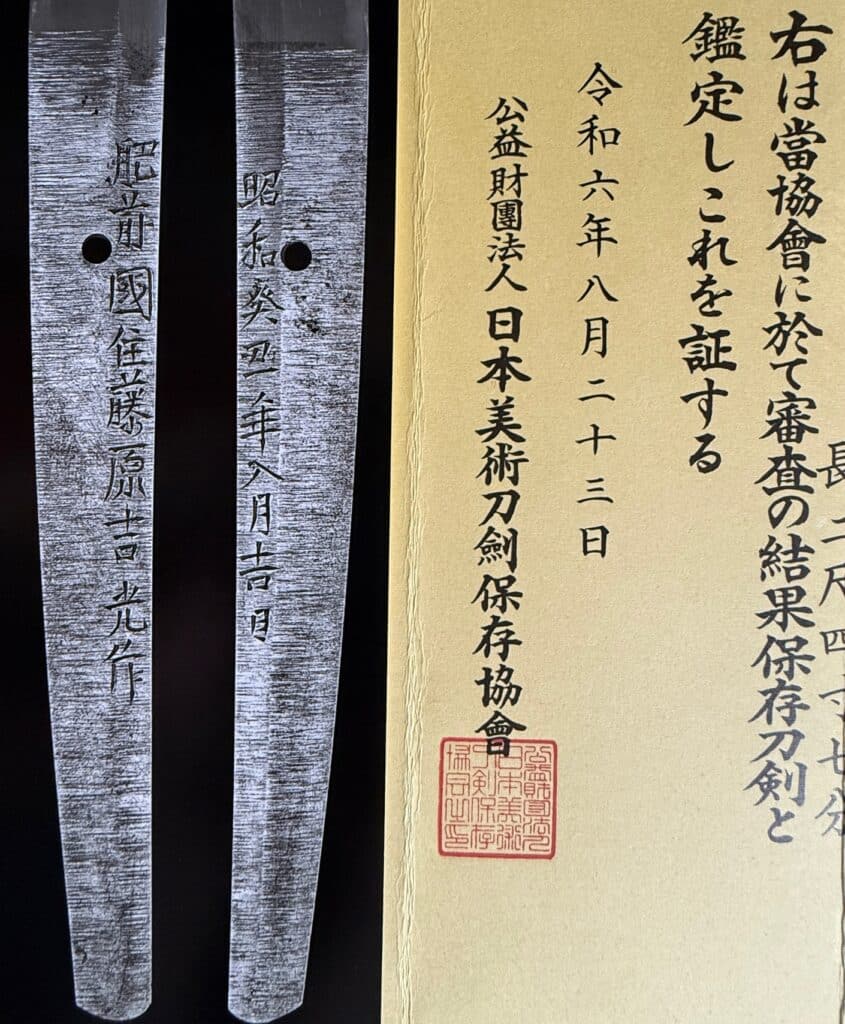 肥前國住藤原吉光作
昭和癸丑年八月吉日
長二尺四寸七分
右は當協會に於て審査の結果保存刀剣と
鑑定しこれを証する
令和六年八月二十三日
公益財團法人日本美術刀劍保存協會